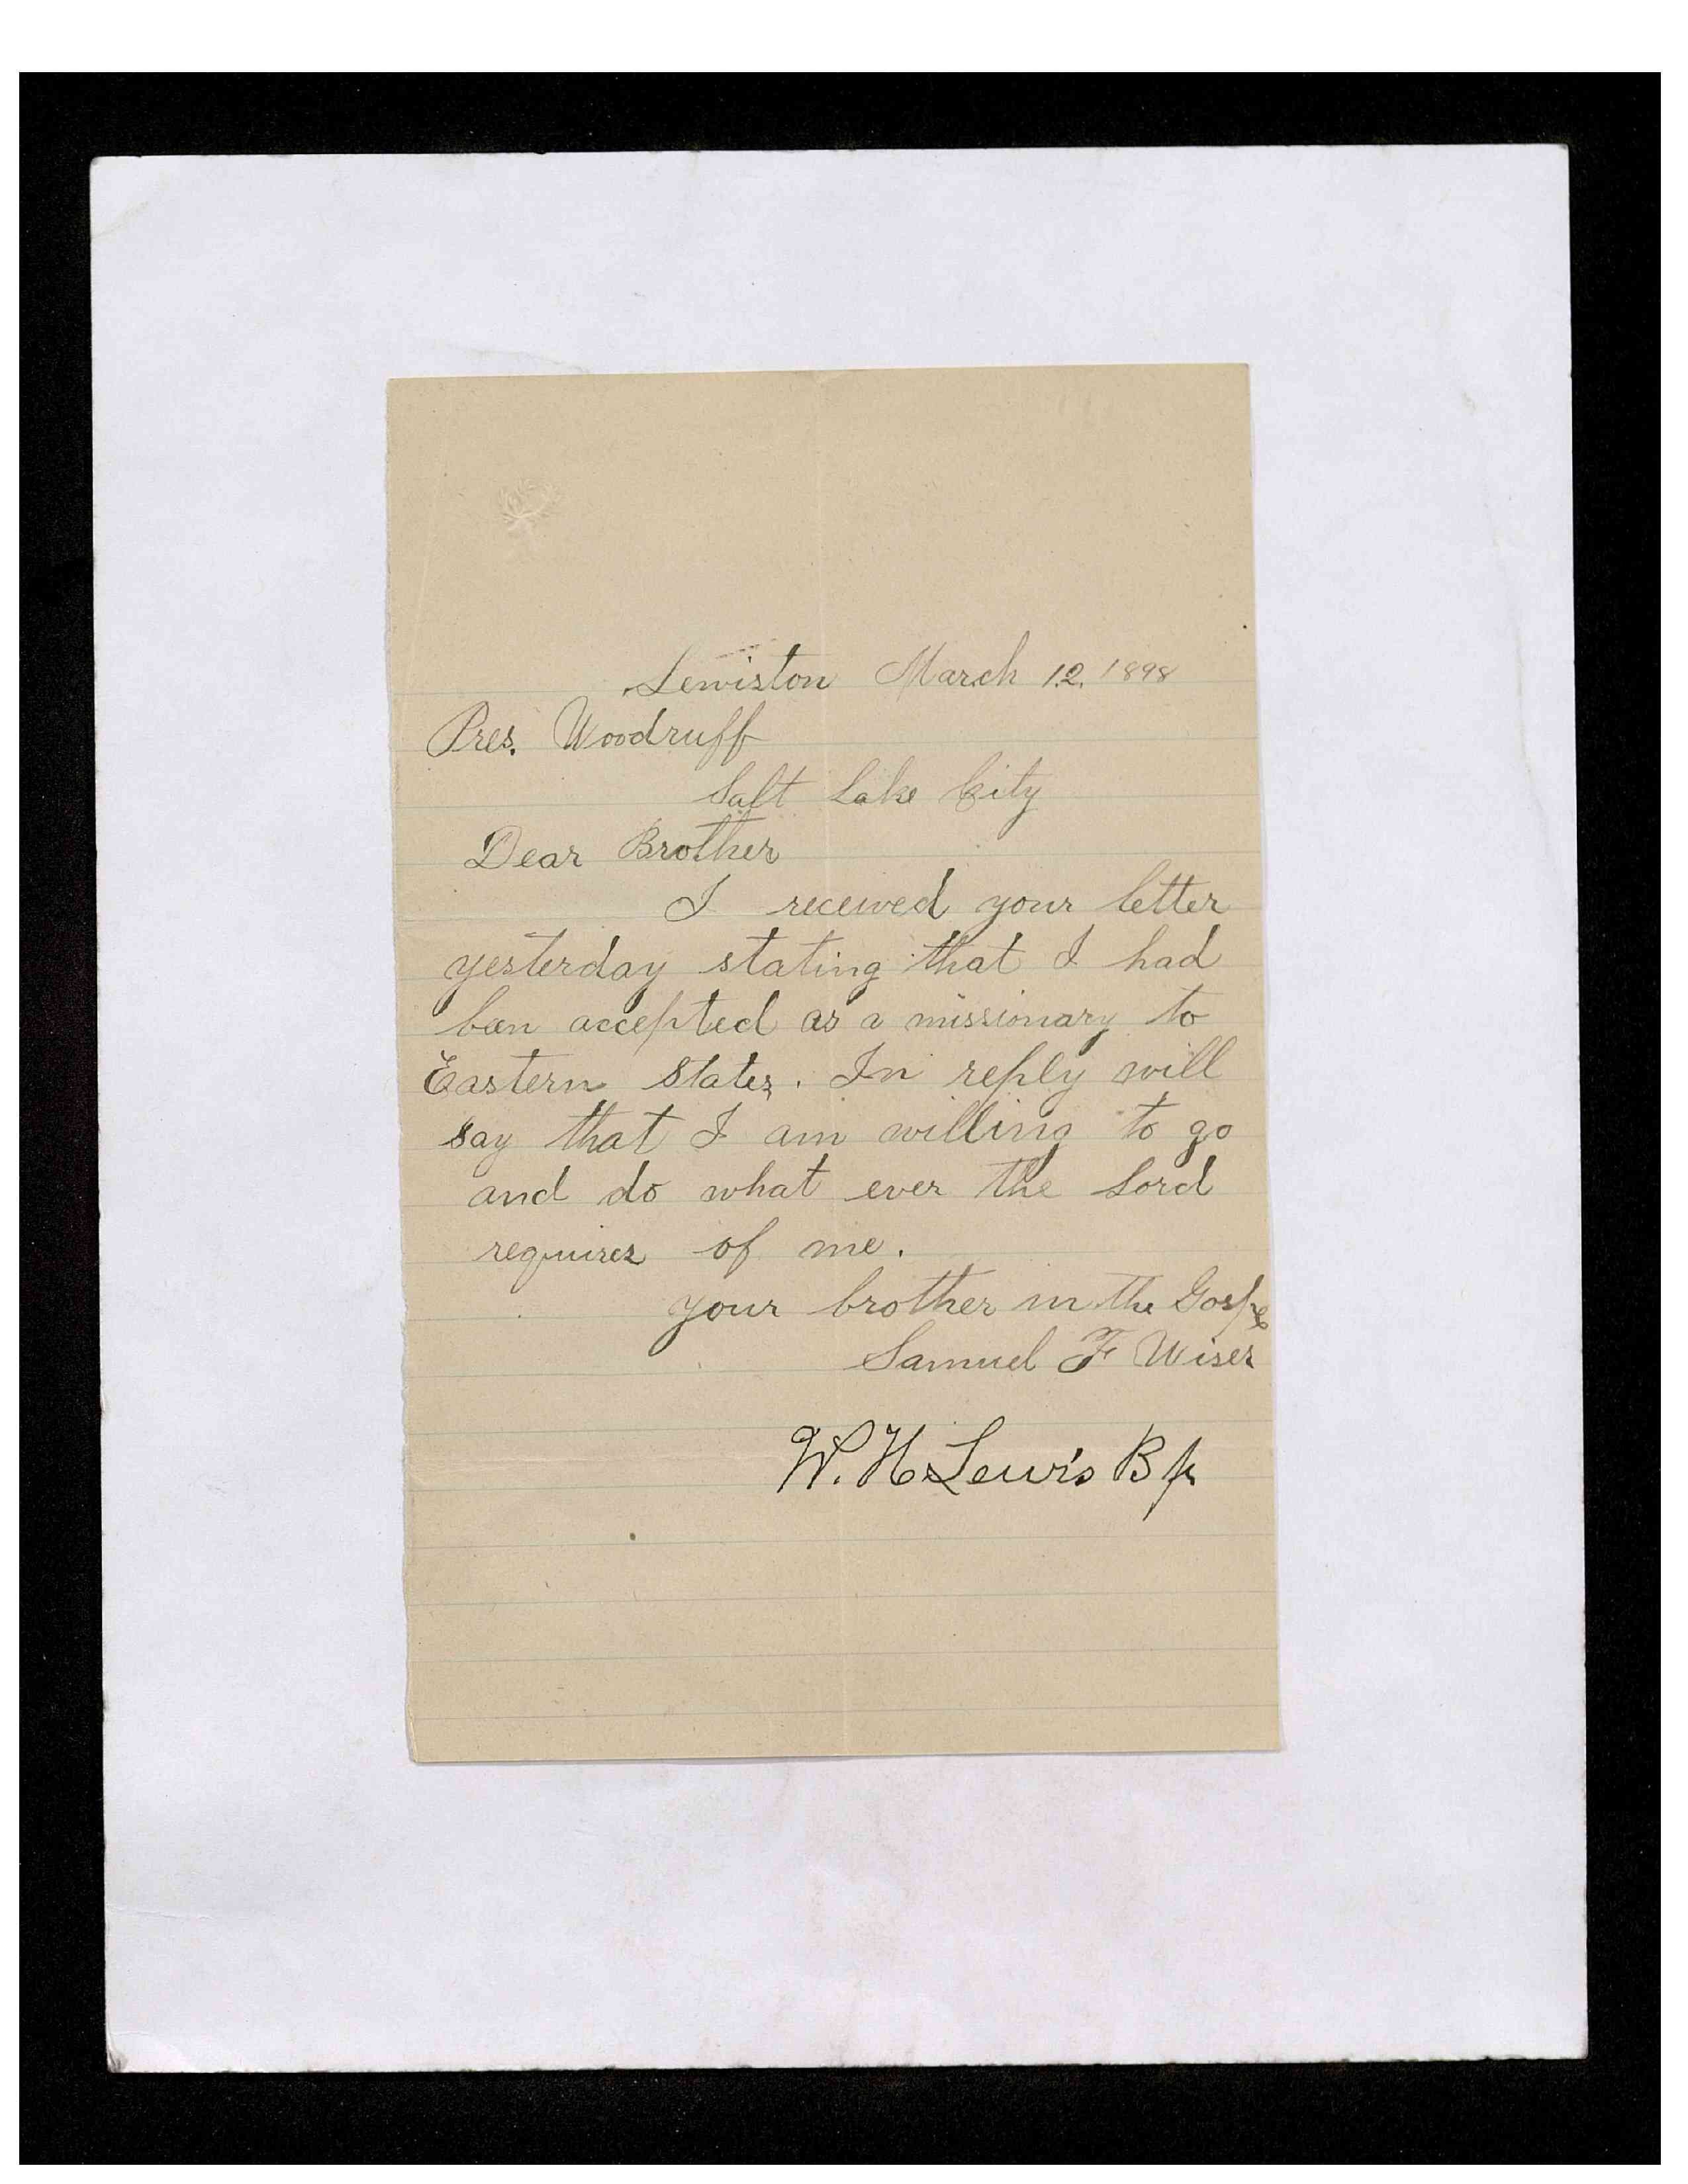 Lewiston March 12, 1898
Pres. Woodruff
Salt Lake City
Dear Brother
I received your letter
yesterday stating that I had
been accepted as a missionary to
Eastern States. In reply will
say that I am willing to go
and do what ever the Lord
requires of me.
your brother in the Gospel
Samuel F Wiser
W. H Lewis Bp